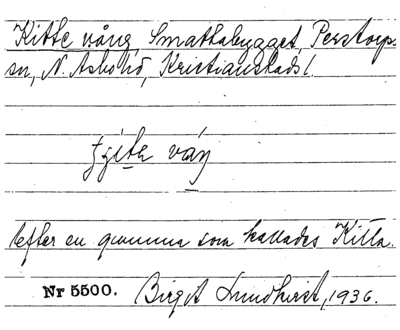 Kitte vång, Smattabygget, Perstorps
sn, N. Åsbo hd, Kristianstads l.
våŋ
Efter en gumma som kallades Kitta.
Nr 5500. Birgit Lundkvist, 1936.